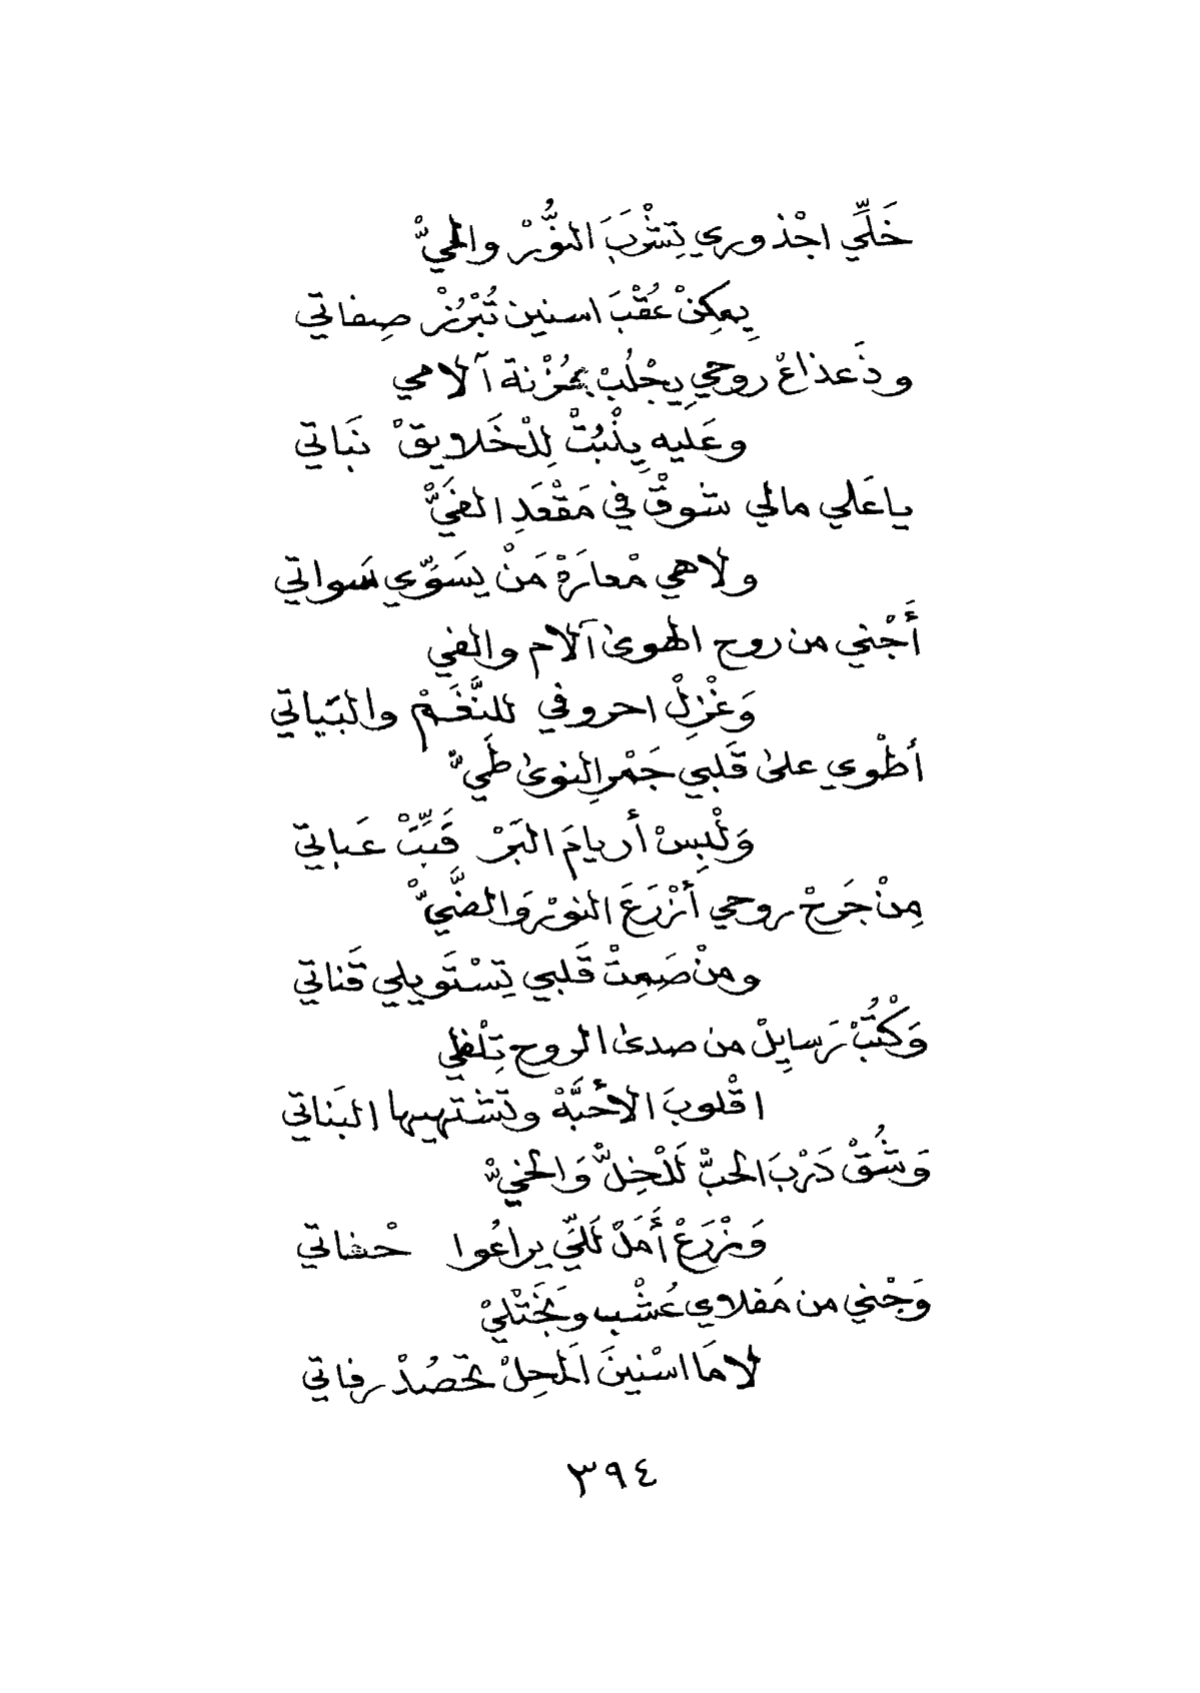 خَلِّي اجْذوري تِشْرَبَ النُّوْرْ والميّْ
يِمكِنْ عُقْبَ اسنين تُبْرُزْ صِفاتي
وذَعذاعْ روحي يِجْلُبْ مُزْنة آلامي
وعَليه يِنْبُتْ لِلْخَلايقْ نَباتي
ياعَلي مالي شوقْ في مَقْعَدِ الفَيّْ
ولاهي مْعارَهْ مَنْ يسَوّي سَواتي
أَجْني من روح الهوىٰ آلام والفي
وَغْزِلْ احروفي للنَّغَمْ والبَياتي
أطْوي علىٰ قَلبي جَمْرِ النوىٰ طَيّْ
وَلْبِسْ أريامَ البَرْ قَبِّتْ عَباتي
مِنْ جَرحْ روحي أزْرَعَ النورْ وَالضَّيّْ
ومِنْ صَمِتْ قَلبي تِسْتَويلي قَناتي
وَكْتُبْ رَسايِلْ من صدىٰ الروح تِلْفي
اقْلوبَ الأحَبَّهْ وتشتهيها البَناتي
وَشُقْ دَرْبَ الحبّْ لَلْخِلّْ وَالخيّْ
وَزْرَعْ أَمَلْ لَلّي يراعُوا حْفاتي
وَجْني من مَفلاي عُشْب ونَخْتليْ
لامَا اسْنينَ المَحِلْ تحصُدْ رفاتي
٣٩٤